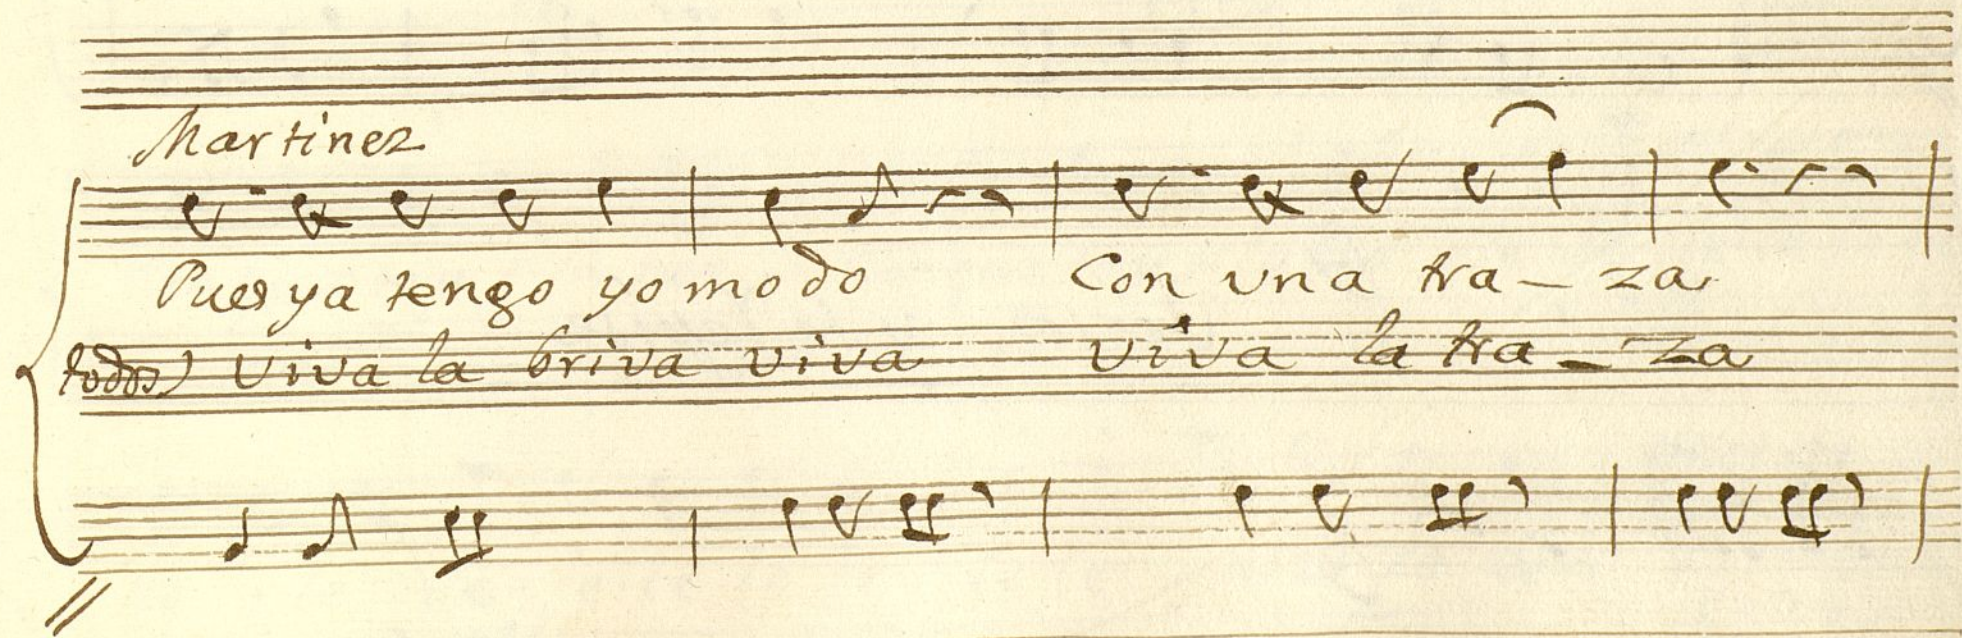 Martinez
Pues ya tengo yo modo Con una tra - za
todos) viva la briva viva viva la tra - za